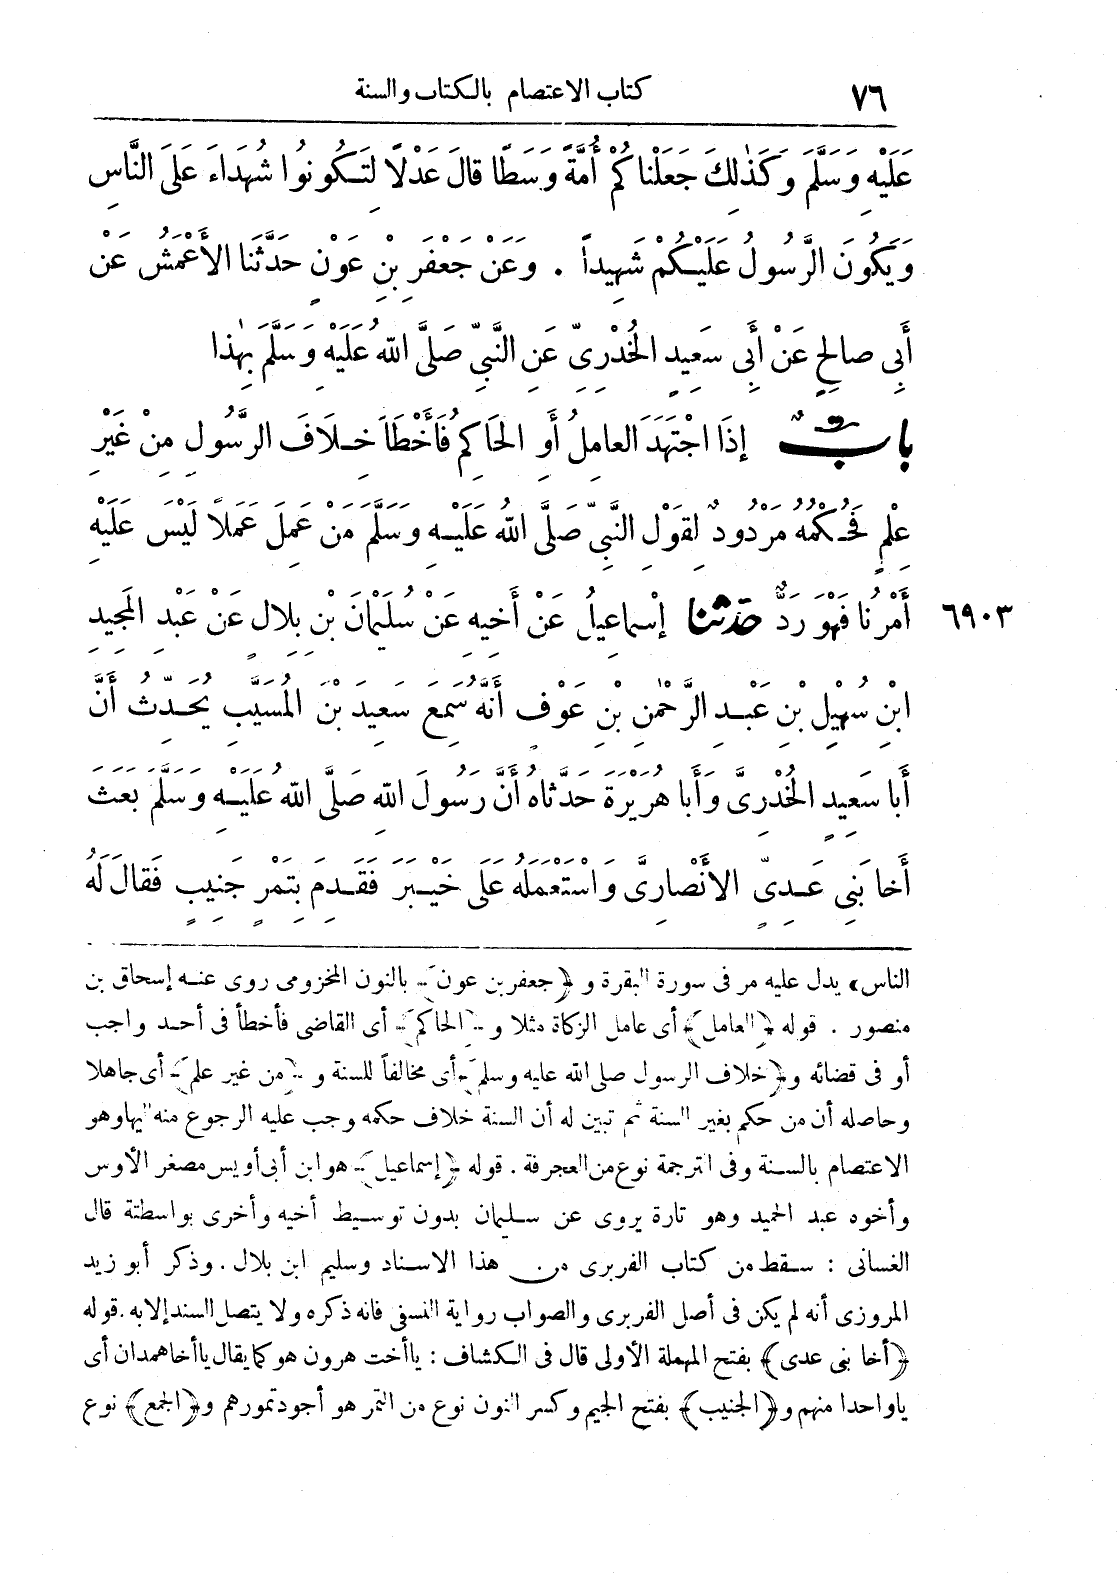 ٧٦ كتاب الاعتصام بالكتاب والسنة
عَلَيْهِ وَسَلَّمَ وَكَذٰلِكَ جَعَلْنَاكُمْ أُمَّةً وَسَطًا قالَ عَدْلاً لِتَكُونُوا شُهَدَاءَ عَلَى النَّاسِ
وَيَكُونَ الرَّسُولُ عَلَيْكُمْ شَهِيداً . وَعَنْ جَعْفَرِ بْنِ عَوْنٍ حَدَّثَنَا الأَعْمَشُ عَنْ
أَبِي صالِحٍ عَنْ أَبِي سَعِيدٍ الخُدْرِىِّ عَنِ النَّبِىِّ صَلَّى اللهُ عَلَيْهِ وَسَلَّمَ بِهٰذا
بابٌ إذَا اجْتَهَدَ العامِلُ أَوِ الحَاكِمُ فَأَخْطَأَ خِلَافَ الرَّسُولِ مِنْ غَيْرِ
عِلْمٍ فَحُكْمُهُ مَرْدُودٌ لِقَوْلِ النَّبِىِّ صَلَّى اللهُ عَلَيْهِ وَسَلَّمَ مَنْ عَمِلَ عَمَلاً لَيْسَ عَلَيْهِ
٦٩٠٣ أَمْرُنا فَهْوَ رَدٌّ حَدَّثَنَا إسْماعِيلُ عَنْ أَخِيهِ عَنْ سُلَيْمَانَ بْنِ بِلالٍ عَنْ عَبْدِ المَجِيدِ
ابْنِ سُهَيْلِ بْنِ عَبْدِ الرَّحْمٰنِ بْنِ عَوْفٍ أَنَّهُ سَمِعَ سَعِيدَ بْنَ المُسَيَّبِ يُحَدِّثُ أَنَّ
أَبا سَعِيدٍ الخُدْرِىَّ وَأَبا هُرَيْرَةَ حَدَّثاهُ أَنَّ رَسُولَ اللهِ صَلَّى اللهُ عَلَيْهِ وَسَلَّمَ بَعَثَ
أَخا بَنِي عَدِىٍّ الأَنْصارِىَّ وَاسْتَعْمَلَهُ عَلَى خَيْبَرَ فَقَدِمَ بِتَمْرٍ جَنِيبٍ فَقالَ لَهُ
الناس﴾ يدل عليه مر فى سورة البقرة و﴿جعفر بن عون﴾ بالنون المخزومى روى عنه إسحاق بن
منصور . قوله ﴿العامل﴾ أى عامل الزكاة مثلا و﴿الحاكم﴾ أى القاضى فأخطأ فى أحد واجب
أو فى قضائه و﴿خلاف الرسول صلى الله عليه وسلم﴾ أى مخالفاً للسنة و﴿من غير علم﴾ أى جاهلا
وحاصله أن من حكم بغير السنة ثم تبين له أن السنة خلاف حكمه وجب عليه الرجوع منه اليها وهو
الاعتصام بالسنة وفى الترجمة نوع من العجرفة . قوله ﴿إسماعيل﴾ هو ابن أبى أويس مصغر الأوس
وأخوه عبد الحميد وهو تارة يروى عن سليمان بدون توسيط أخيه وأخرى بواسطتة قال
الغسانى : سقط من كتاب الفربرى من هذا الاسناد وسليم ابن بلال . وذكر أبو زيد
المروزى أنه لم يكن فى أصل الفربرى والصواب رواية النسفى فانه ذكره ولا يتصل السند إلا به . قوله
﴿أخا بنى عدى﴾ بفتح المهملة الأولى قال فى الكشاف : ياأخت هرون هو كما يقال ياأخا همدان أى
ياواحدا منهم و﴿الجنيب﴾ بفتح الجيم وكسر النون نوع من التمر هو أجود تمورهم و﴿الجمع﴾ نوع